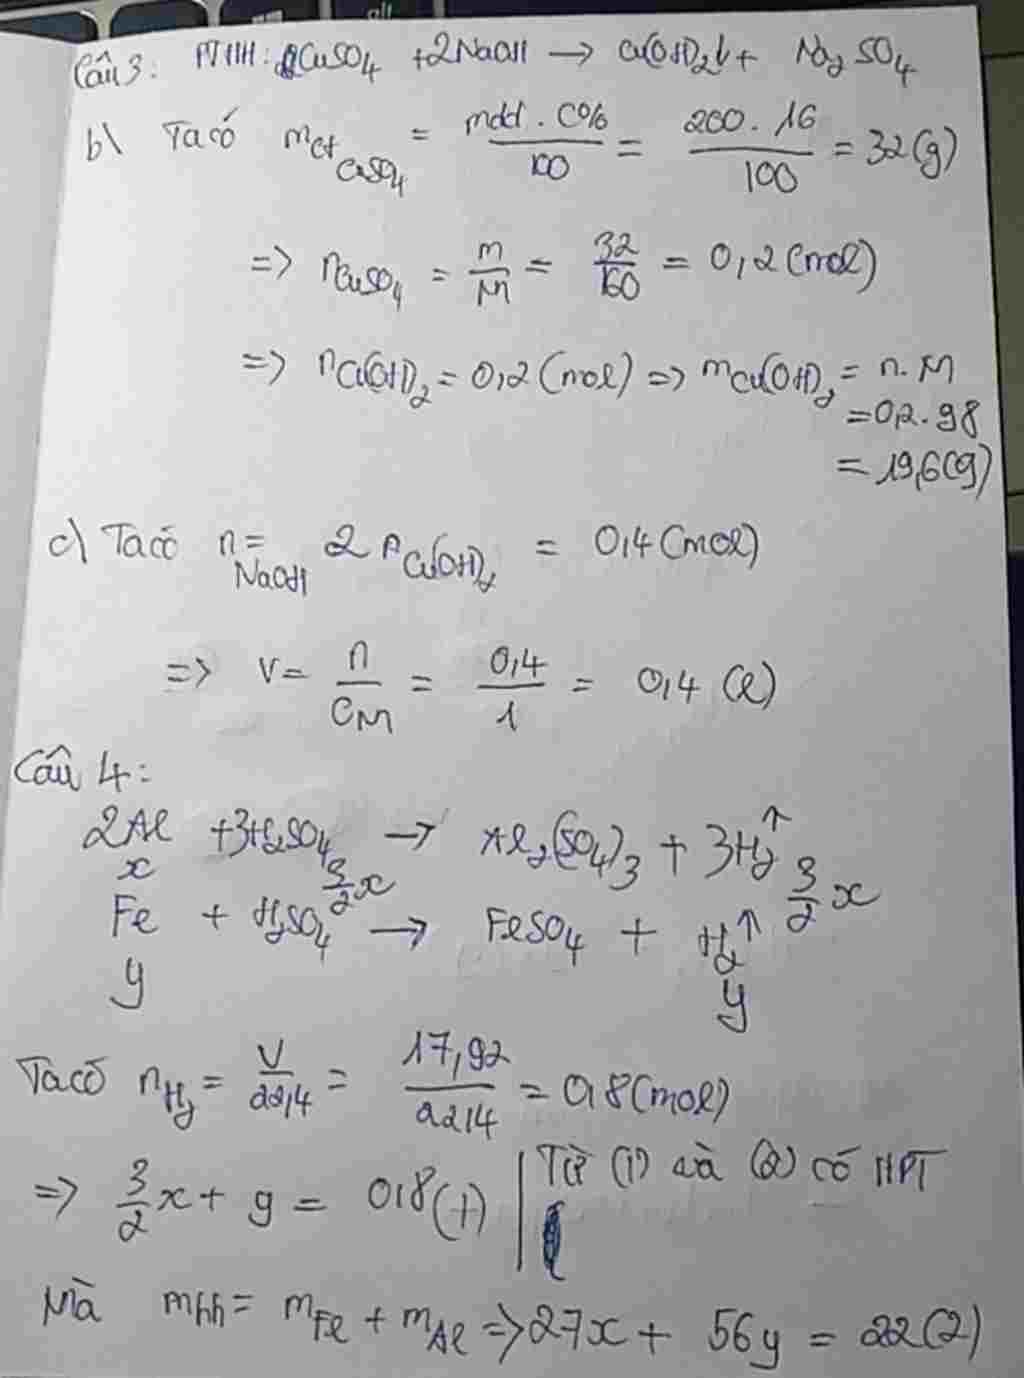 Câu 3: PTHH: CuSO4 + 2NaOH → Cu(OH)2↓ + Na2SO4
b) Ta có mct CuSO4 = mdd . C% / 100 = 200 . 16 / 100 = 32 (g)
=> nCuSO4 = m/M = 32/160 = 0,2 (mol)
=> nCu(OH)2 = 0,2 (mol) => mCu(OH)2 = n.M
= 0,2 . 98
= 19,6 (g)
c) Ta có nNaOH = 2 nCu(OH)2 = 0,4 (mol)
=> V = n/CM = 0,4/1 = 0,4 (l)
Câu 4:
2Al + 3H2SO4 → Al2(SO4)3 + 3H2↑
x 3/2x 3/2x
Fe + H2SO4 → FeSO4 + H2↑
y y
Ta có nH2 = V/22,4 = 17,92/22,4 = 0,8 (mol)
=> 3/2x + y = 0,8 (1) | Từ (1) và (2) có HPT
Mà mhh = mFe + mAl => 27x + 56y = 22 (2)